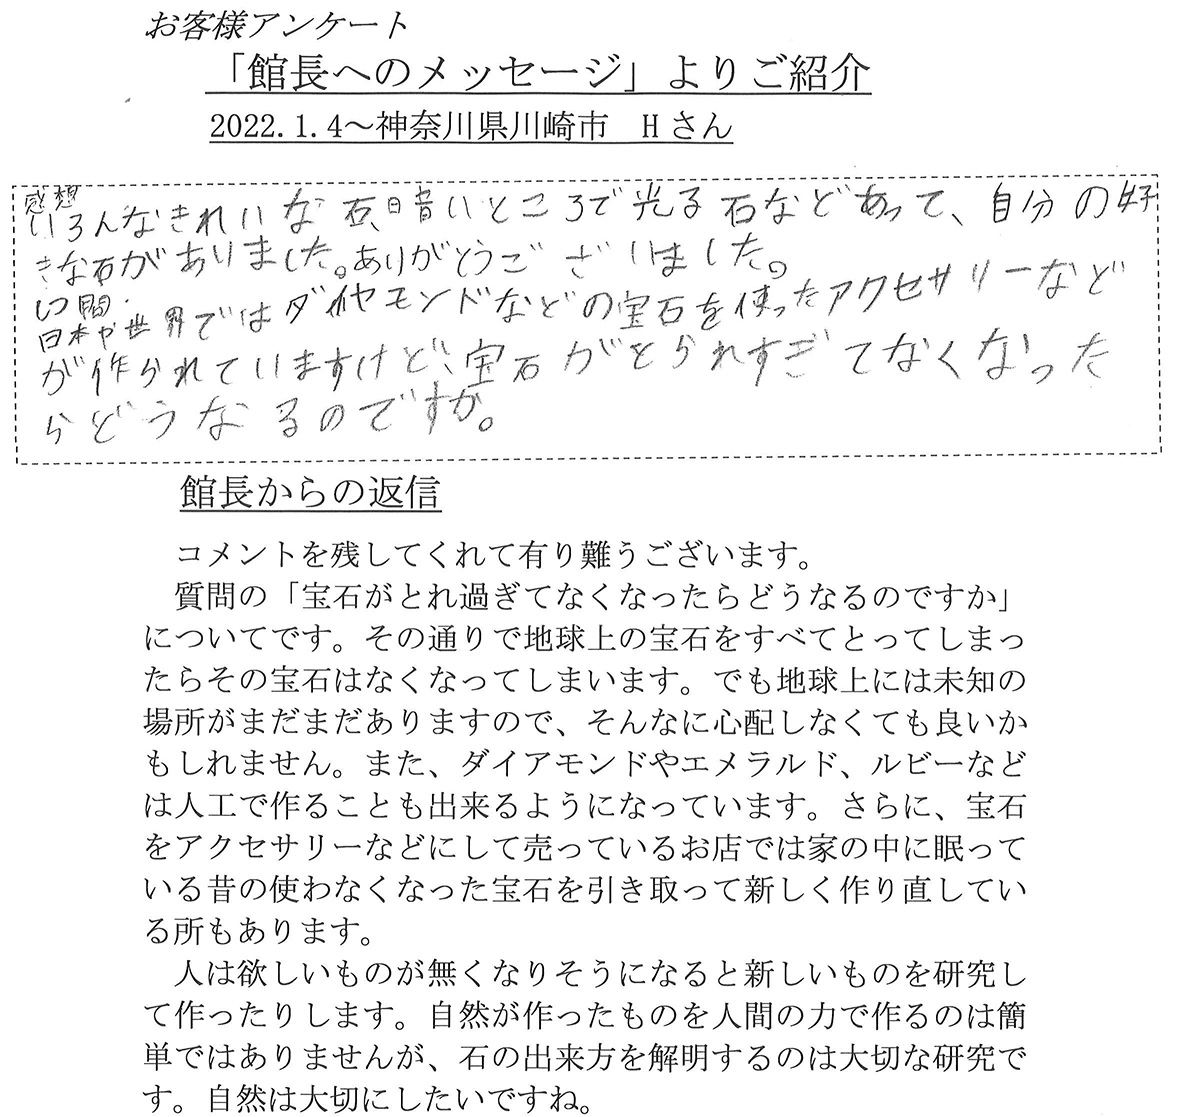 お客様アンケート
「館長へのメッセージ」よりご紹介
2022.1.4～神奈川県川崎市　Hさん
感想
いろんなきれいな石、暗いところで光る石などあって、自分の好
きな石がありました。ありがとうございました。
しつ問・
日本や世界ではダイヤモンドなどの宝石を使ったアクセサリーなど
が作られていますけど、宝石がとられすぎてなくなった
らどうなるのですか。
館長からの返信
コメントを残してくれて有り難うございます。
質問の「宝石がとれ過ぎてなくなったらどうなるのですか」
についてです。その通りで地球上の宝石をすべてとってしまっ
たらその宝石はなくなってしまいます。でも地球上には未知の
場所がまだまだありますので、そんなに心配しなくても良いか
もしれません。また、ダイアモンドやエメラルド、ルビーなど
は人工で作ることも出来るようになっています。さらに、宝石
をアクセサリーなどにして売っているお店では家の中に眠って
いる昔の使わなくなった宝石を引き取って新しく作り直してい
る所もあります。
人は欲しいものが無くなりそうになると新しいものを研究し
て作ったりします。自然が作ったものを人間の力で作るのは簡
単ではありませんが、石の出来方を解明するのは大切な研究で
す。自然は大切にしたいですね。